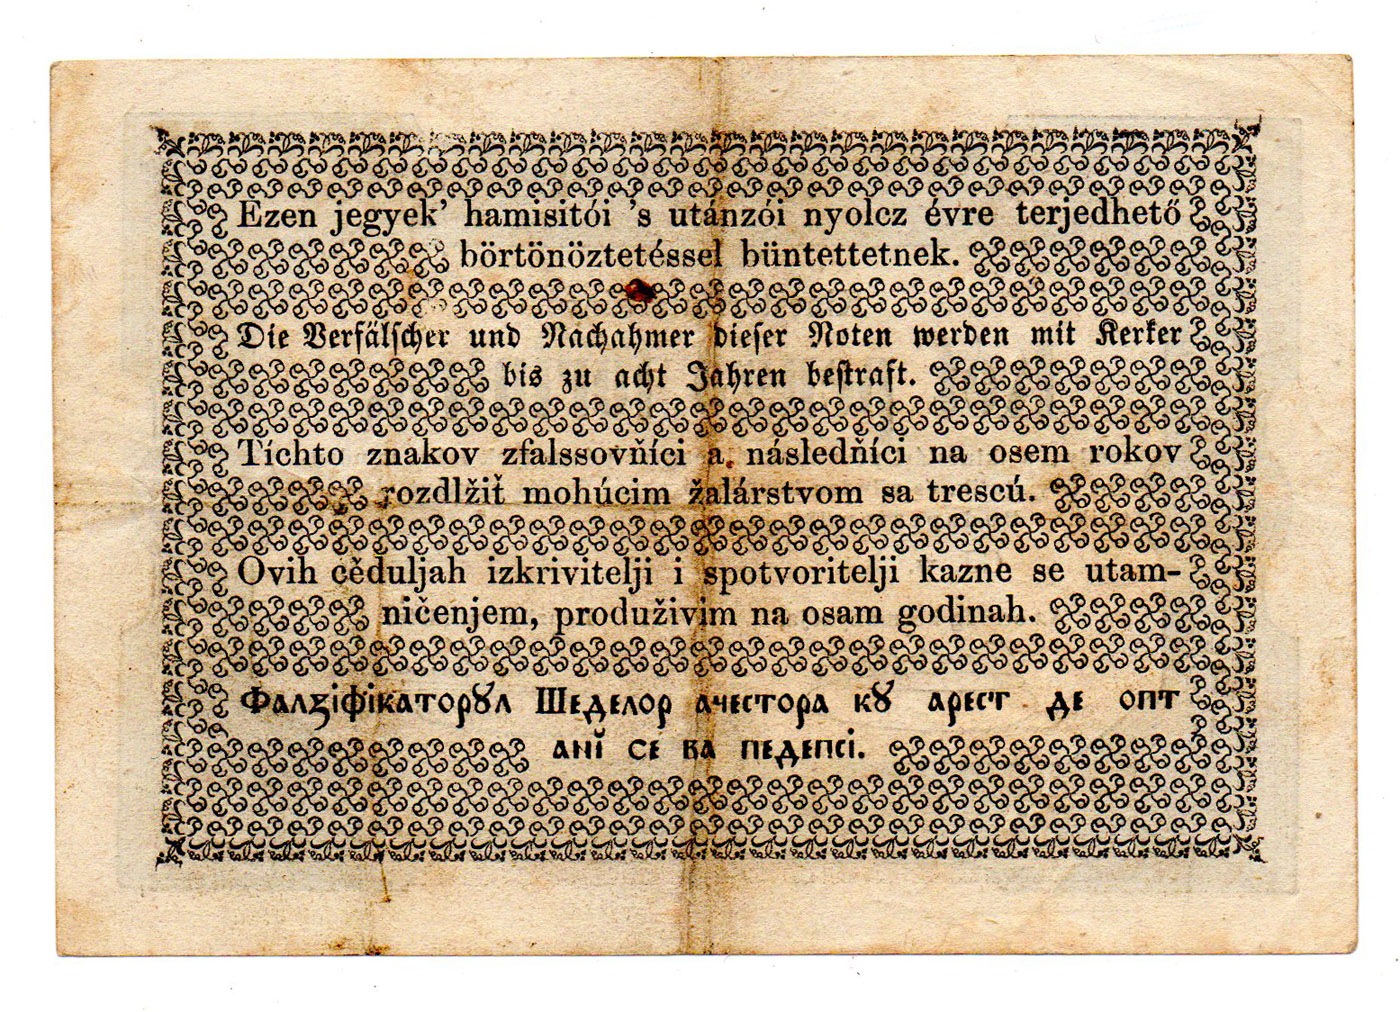 Ezen jegyek’ hamisitói ’s utánzói nyolcz évre terjedhető
börtönöztetéssel büntettetnek.
Die Verfälscher und Nachahmer dieser Noten werden mit Kerker
bis zu acht Jahren bestraft.
Tíchto znakov zfalssovňíci a následňíci na osem rokov
rozdlžiť mohúcim žalárstvom sa trescú.
Ovih cěduljah izkrivitelji i spotvoritelji kazne se utam-
ničenjem, produživim na osam godinah.
Фалʒіфікаторꙋл Шеделор ачестора кꙋ арест де опт
анĭ се ва педепсі.